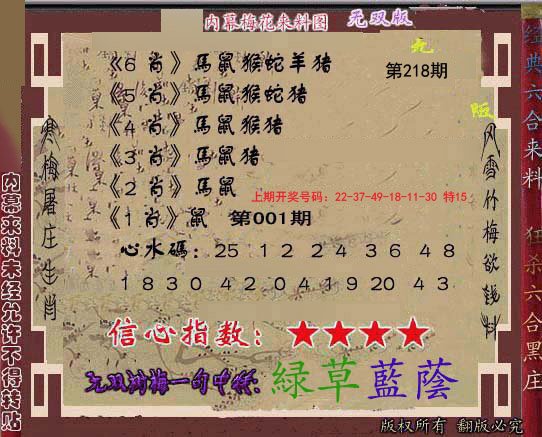 内幕梅花来料图 无双版
经典六合来料 狂杀六合黑庄
无
版
第218期
《6 肖》馬鼠猴蛇羊猪
《5 肖》馬鼠猴蛇猪
《4 肖》馬鼠猴猪
《3 肖》馬鼠猪
《2 肖》馬鼠
上期开奖号码：22-37-49-18-11-30 特15
《1 肖》鼠 第001期
心水碼：25 12 24 36 48
18 30 42 04 19 20 43
寒梅屠庄生肖
风雪竹梅欲钱料
内幕来料未经允许不得转贴
信心指数：★★★★
绿草藍蔭
版权所有 翻版必究